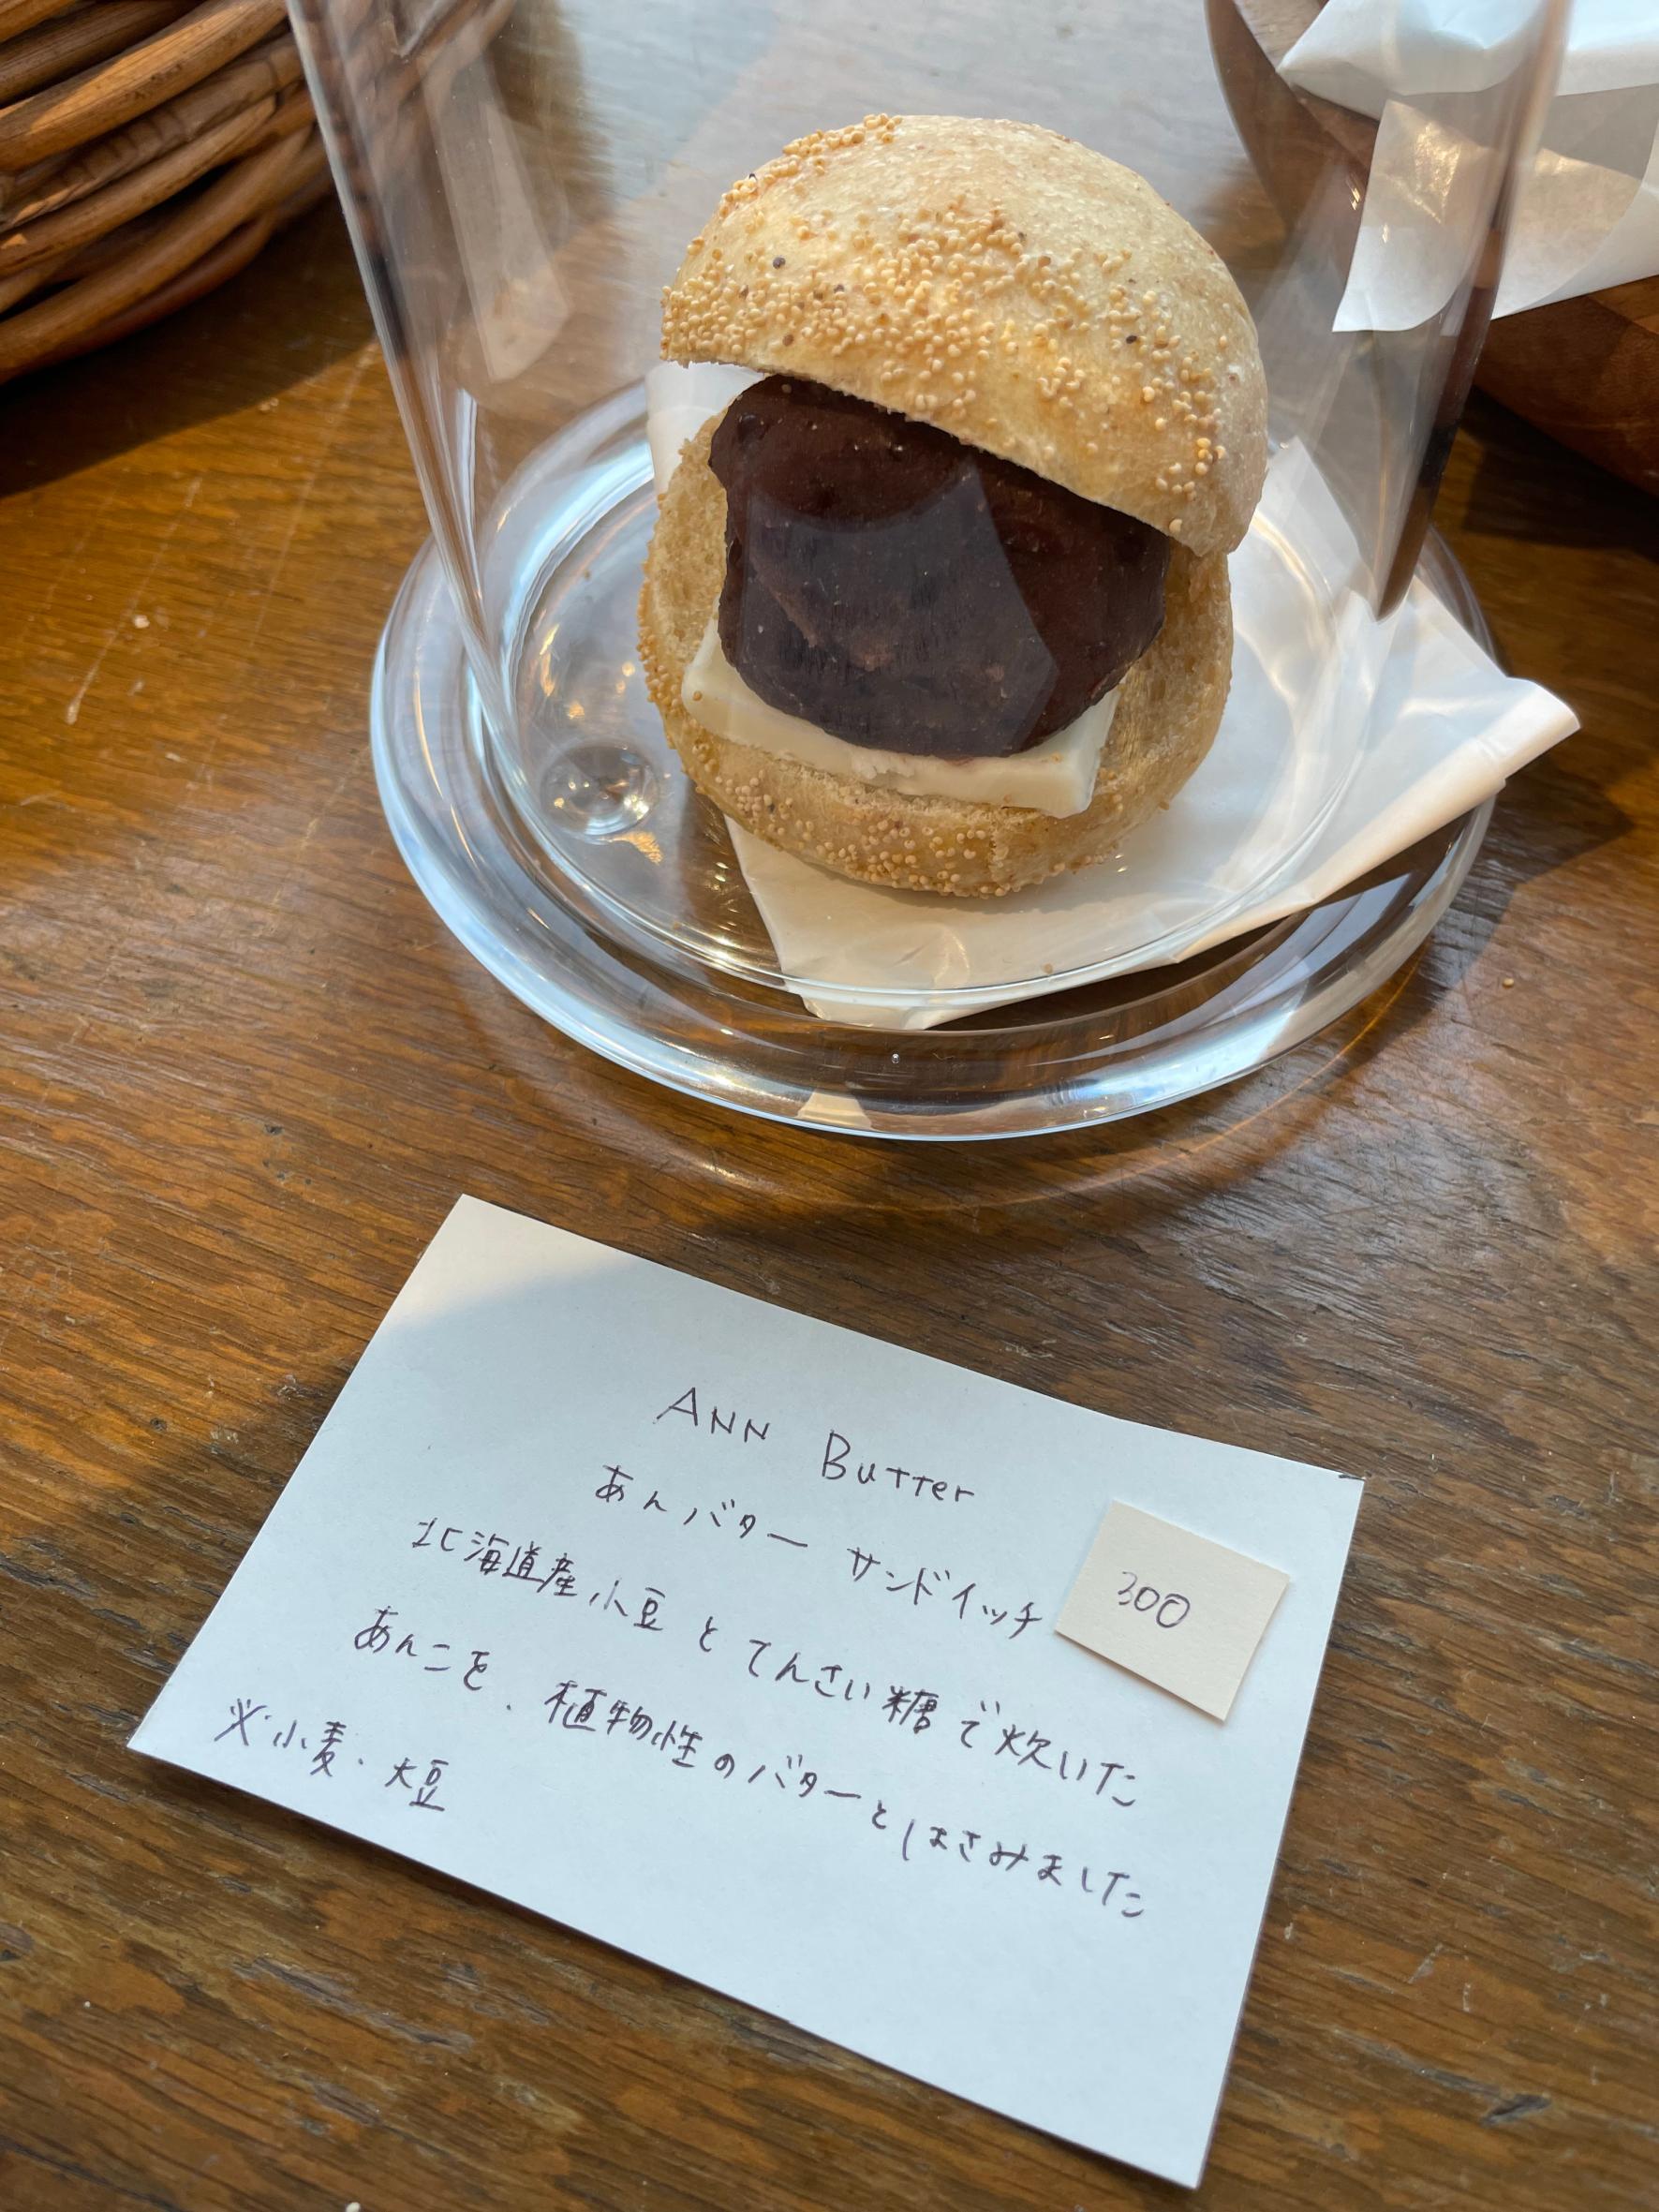 ANN Butter
あんバター サンドイッチ
300
北海道産小豆とてんさい糖で炊いた
あんこを、植物性のバターとはさみました
※小麦・大豆